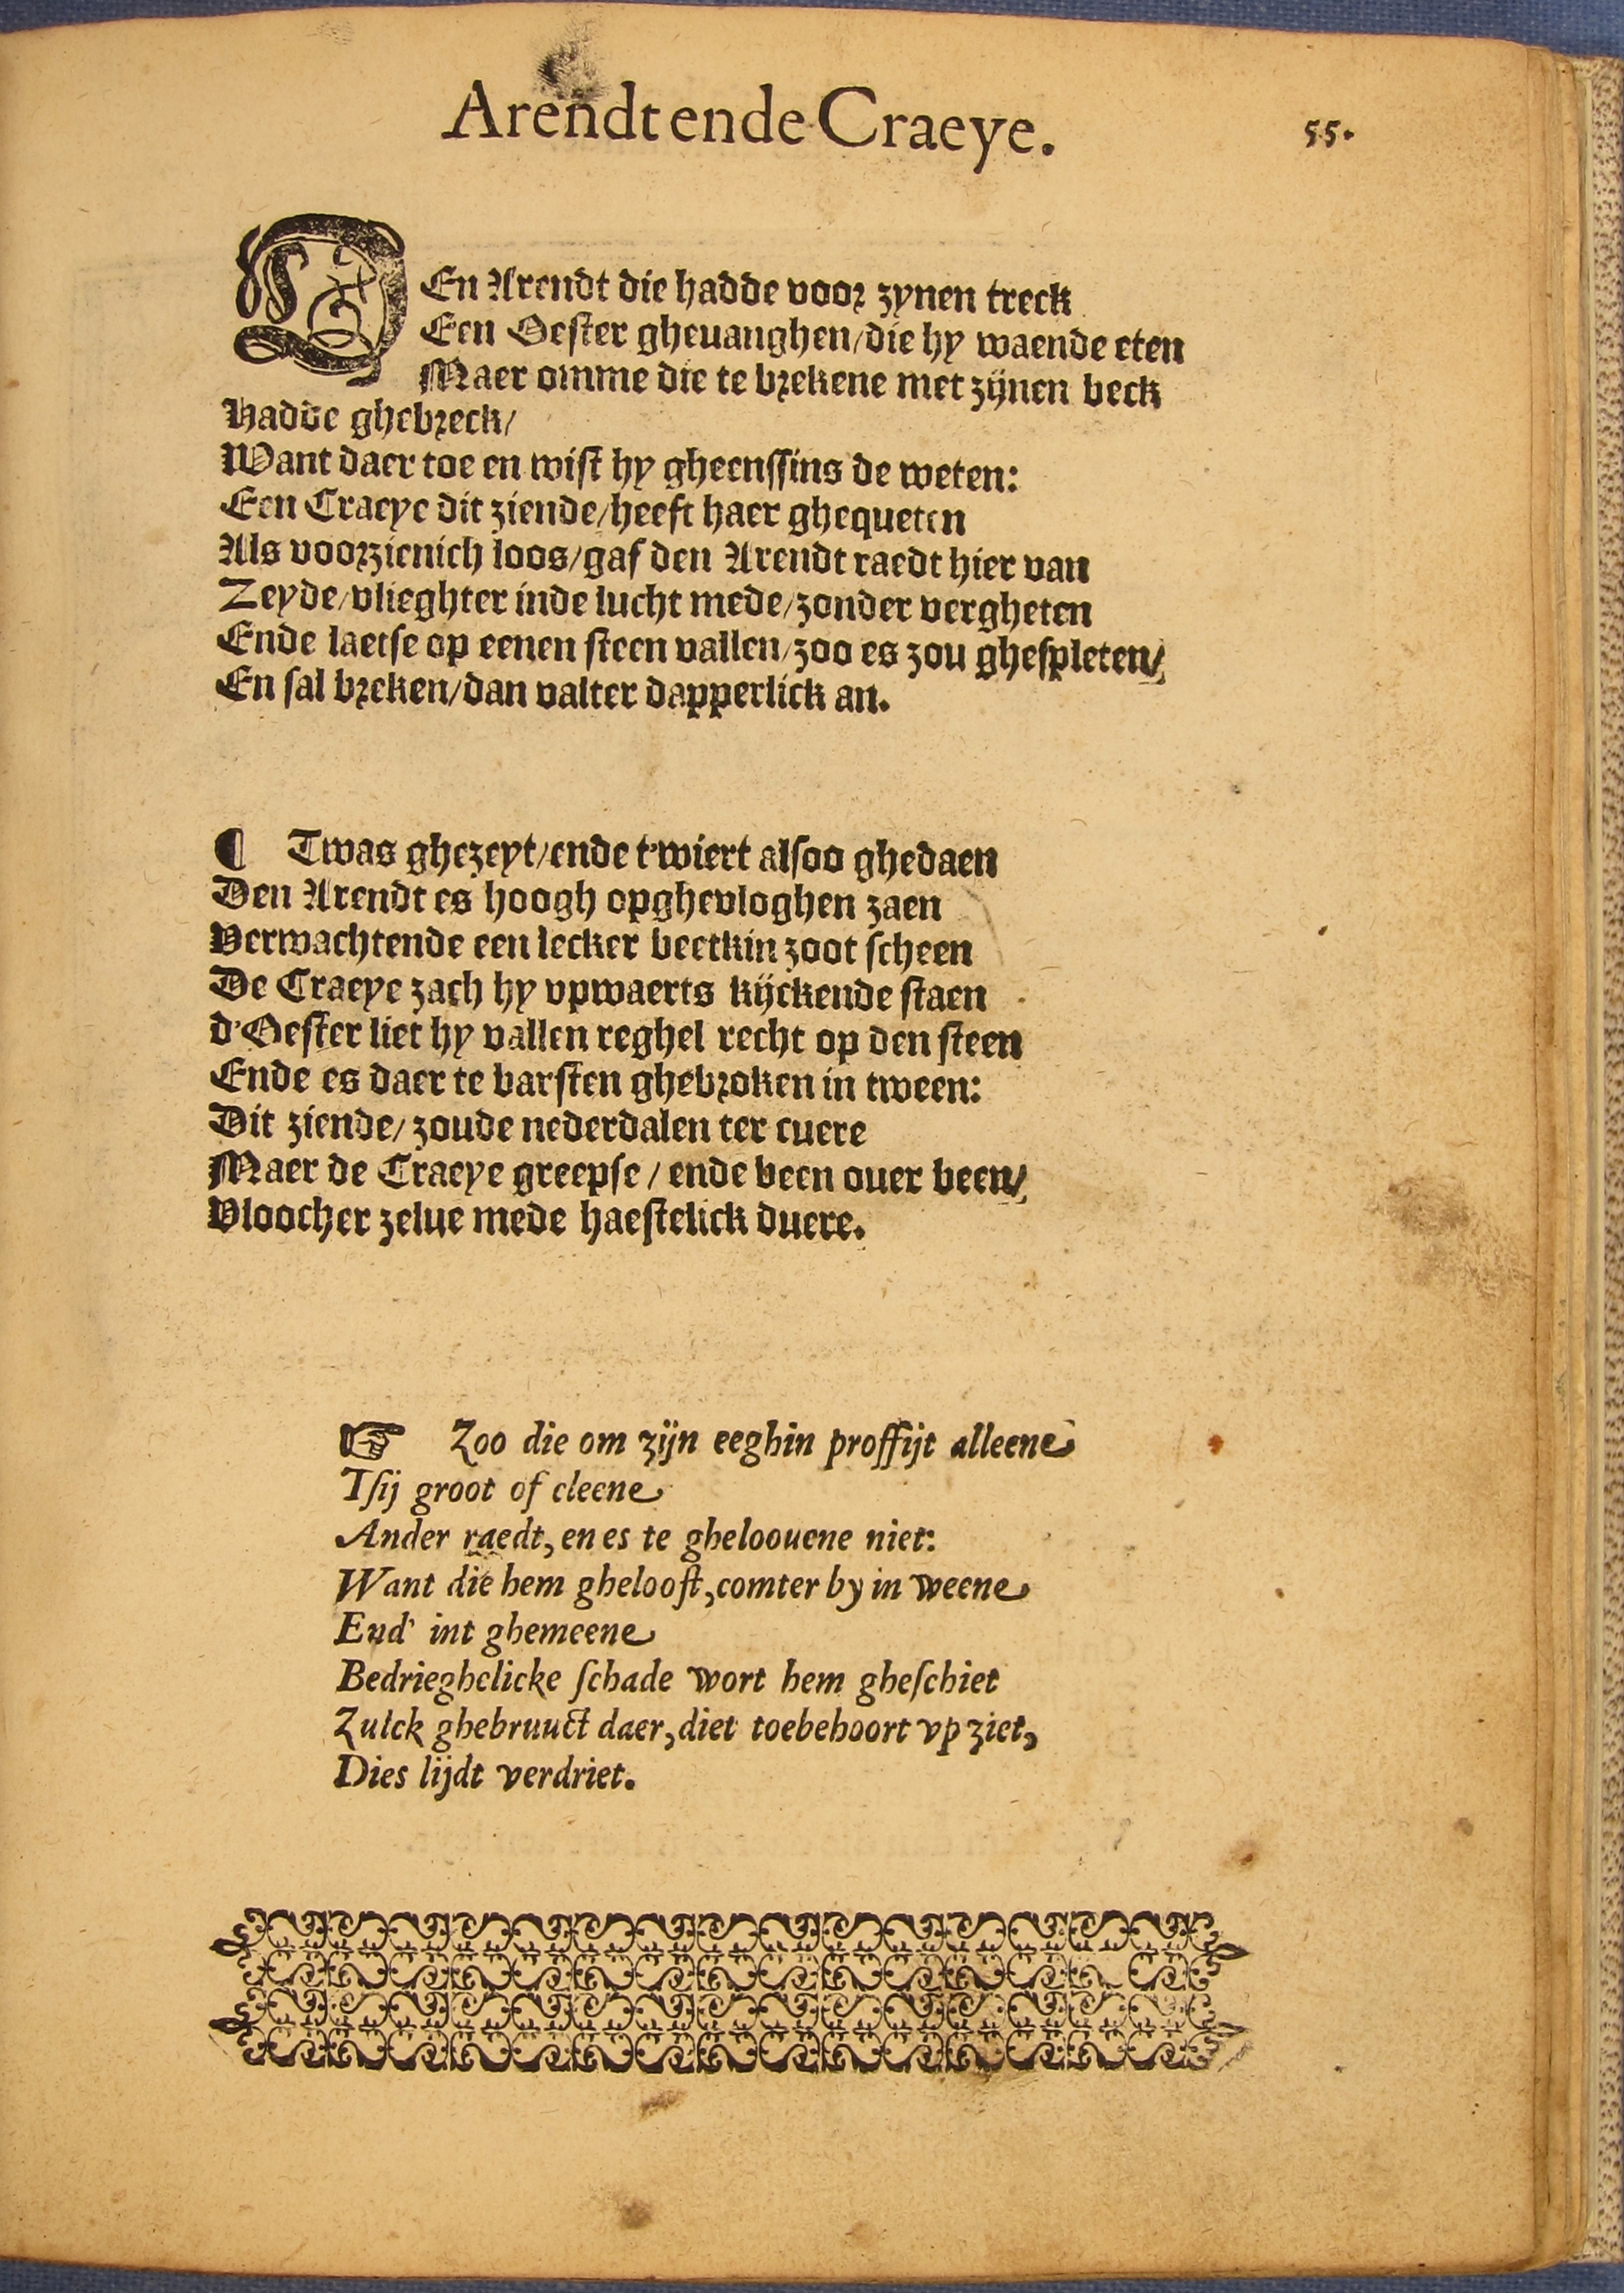 Arendt ende Craeye.
55.
DEn Arendt die hadde voor zynen treck
Een Oester gheuanghen/die hy waende eten
Maer omme die te brekene met zijnen beck
Hadde ghebreck/
Want daer toe en wist hy gheenssins de weten:
Een Craeye dit ziende/heeft haer ghequeten
Als voorzienich loos/gaf den Arendt raedt hier van
Zeyde/vlieghter inde lucht mede/zonder vergheten
Ende laetse op eenen steen vallen/zoo es zou ghespleten/
En sal breken/dan valter dapperlick an.
¶ Twas ghezeyt/ende t'wiert alsoo ghedaen
Den Arendt es hoogh opghevloghen zaen
Verwachtende een lecker beetkin zoot scheen
De Craeye zach hy vpwaerts kijckende staen
d'Oester liet hy vallen reghel recht op den steen
Ende es daer te barsten ghebroken in tween:
Dit ziende/zoude nederdalen ter cuere
Maer de Craeye greepse / ende been ouer been/
Vloocher zelue mede haestelick duere.
☞ Zoo die om zijn eeghin proffijt alleene
Tsij groot of cleene
Ander raedt, en es te gheloouene niet:
Want die hem ghelooft, comter by in weene
End' int ghemeene
Bedrieghelicke schade wort hem gheschiet
Zulck ghebruuct daer, diet toebehoort vp ziet,
Dies lijdt verdriet.